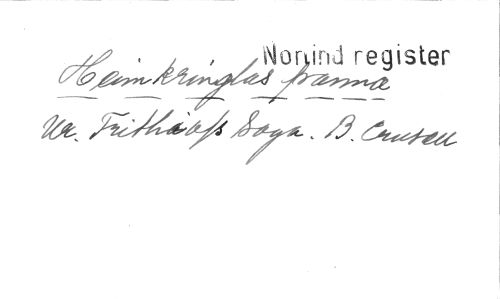 Nonind register
Heimkringlas panna
Ur. Frithiofs Saga. B. Crusell